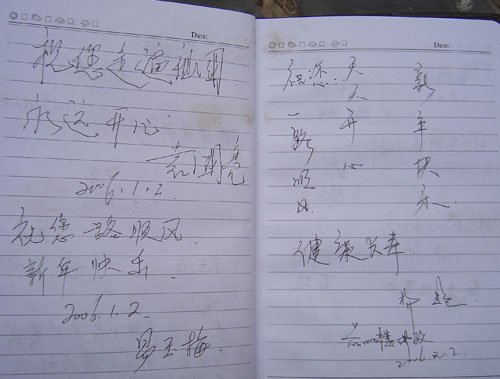 Date:
祝您走遍祖国
永远开心
2006.1.2.
祝您一路顺风.
新年快乐.
2006.1.2.
易玉梅.
Date:
祝您:天天开心
一路顺风.
新年快乐.
健康长寿.